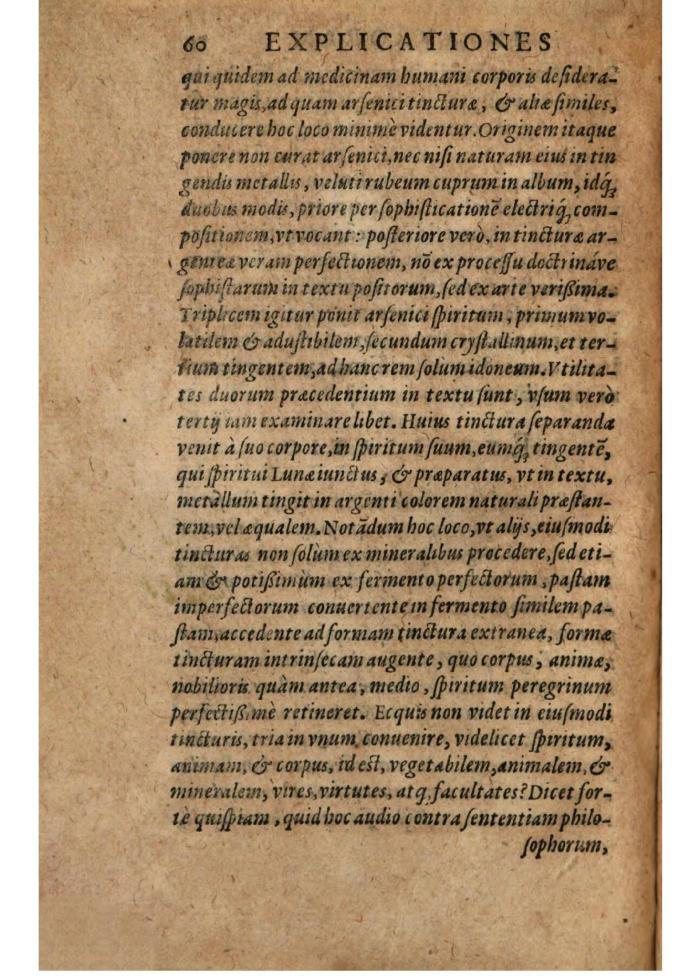 60 EXPLICATIONES
qui quidem ad medicinam humani corporis desidera-
tur magis, ad quam arsenici tincturæ, & aliæ similes,
conducere hoc loco minimè videntur. Originem itaque
ponere non curat arsenici, nec nisi naturam eius in tin
gendis metallis, veluti rubeum cuprum in album, idq́;
duobus modis, priore per sophisticationē electriq́; com-
positionem, vt vocant: posteriore verò, in tincturæ ar-
genteæ veram perfectionem, nō ex processu doctrináve
sophistarum in textu positorum, sed ex arte verißima.
Triplicem igitur ponit arsenici spiritum, primum vo-
latilem & adustibilem, secundum crystallinum, et ter-
tium tingentem, ad hanc rem solum idoneum. Vtilita-
tes duorum præcedentium in textu sunt, vsum verò
tertij iam examinare libet. Huius tinctura separanda
venit à suo corpore, in spiritum suum, eumq́; tingentē,
qui spiritui Lunæ iunctus, & præparatus, vt in textu,
metallum tingit in argenti colorem naturali præstan-
tem, vel æqualem. Notādum hoc loco, vt alijs, eiusmodi
tincturas non solùm ex mineralibus procedere, sed eti-
am & potißimùm ex fermento perfectorum, pastam
imperfectorum conuertente in fermento similem pa-
stam, accedente ad formam tinctura extranea, formæ
tincturam intrinsecam augente, quo corpus, animæ,
nobilioris quàm antea, medio, spiritum peregrinum
perfectißimè retineret. Ecquis non videt in eiusmodi
tincturis, tria in vnum conuenire, videlicet spiritum,
animam, & corpus, id est, vegetabilem, animalem, &
mineralem, vires, virtutes, atq; facultates? Dicet for-
tè quispiam, quid hoc audio contra sententiam philo-
sophorum,